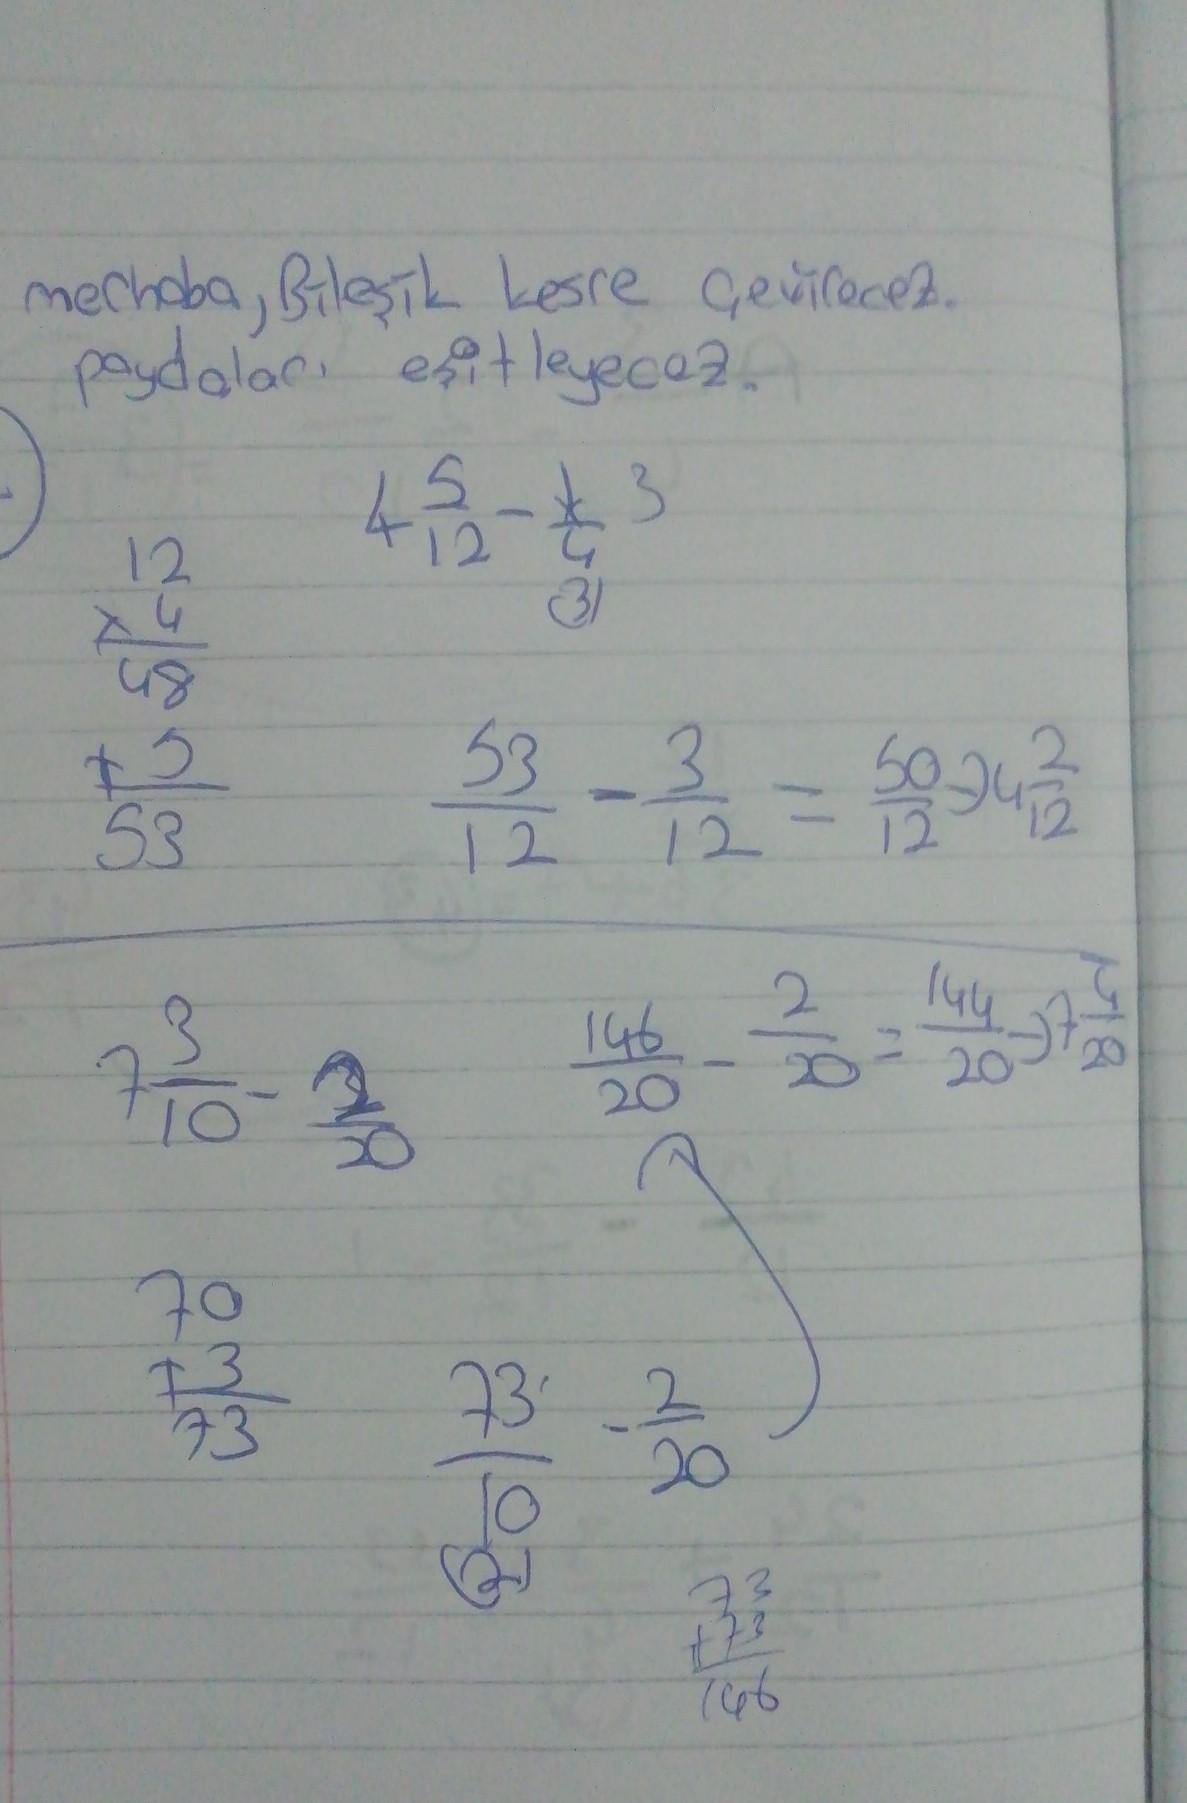 merhaba, Bileşik kesre çevirecez.
paydaları eşitleyecez.
4 5/12 - 1/4 3
(3)
12
x 4
48
+ 5
53
53/12 - 3/12 = 50/12 → 4 2/12
7 3/10 - 2/20
146/20 - 2/20 = 144/20 → 7 4/20
70
+ 3
73
73/10 - 2/20
(2)
73
+73
146